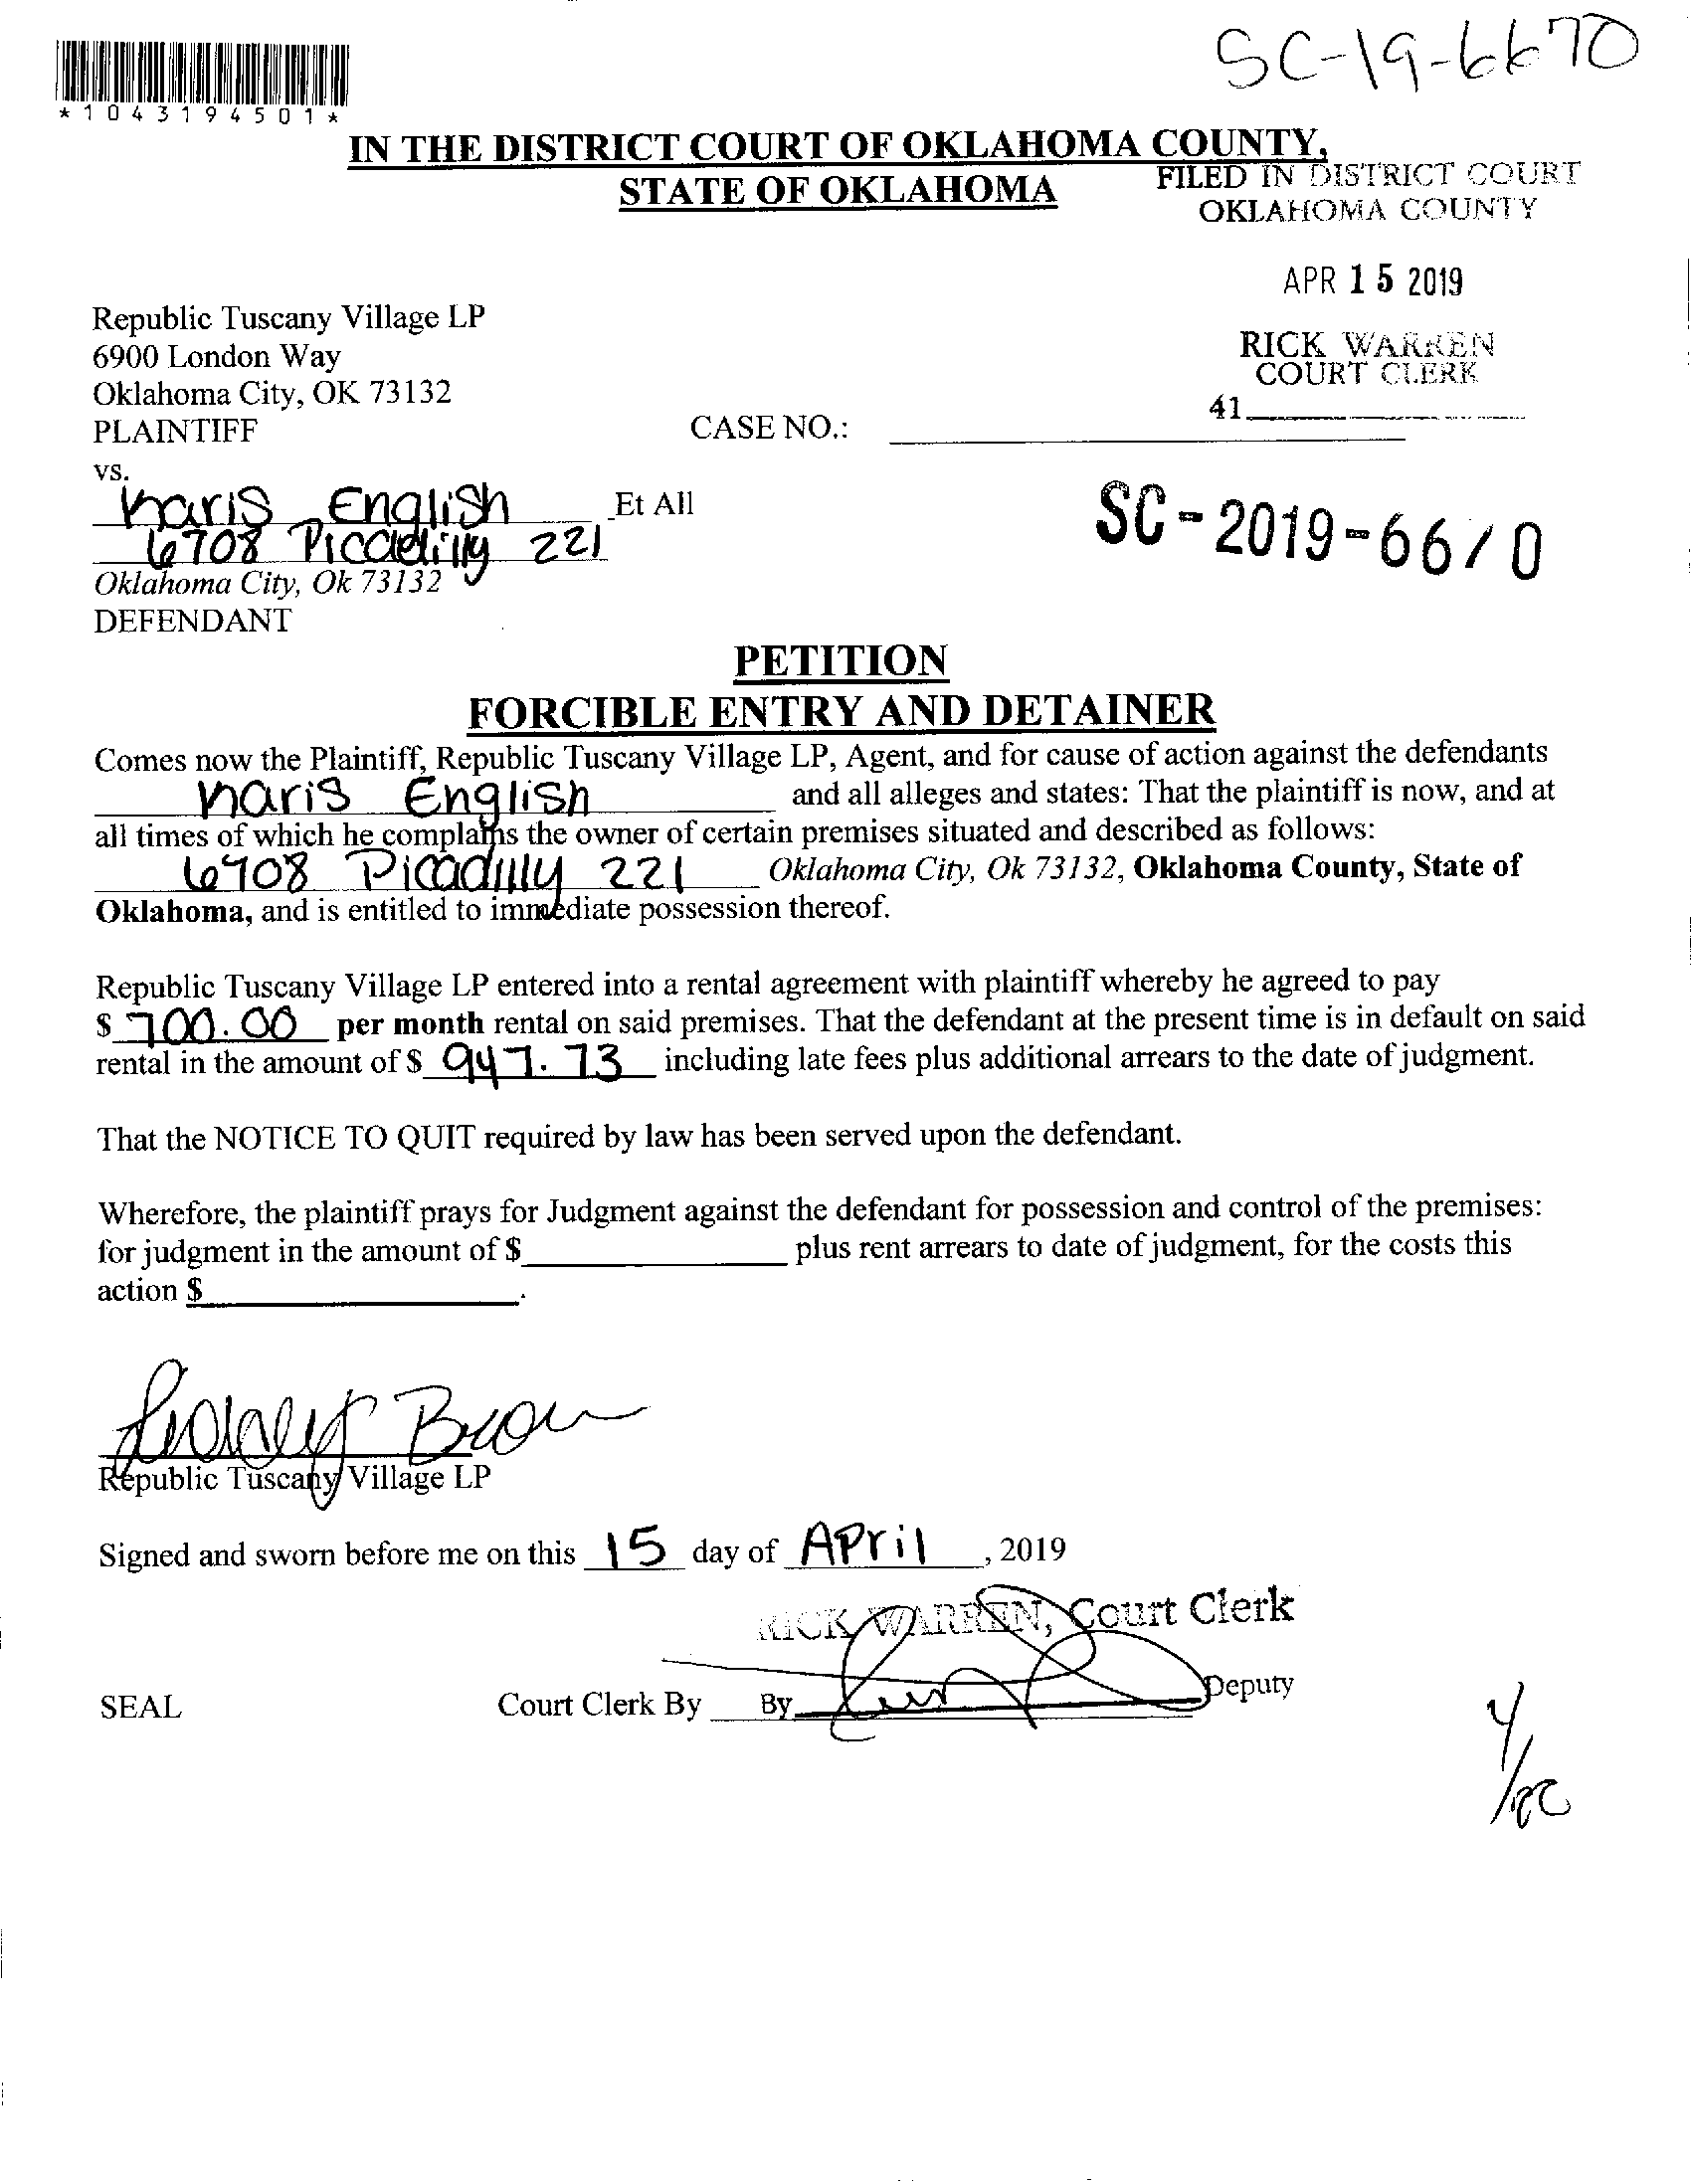 SC-19-6670
*1043194501*
IN THE DISTRICT COURT OF OKLAHOMA COUNTY,
STATE OF OKLAHOMA
FILED IN DISTRICT COURT
OKLAHOMA COUNTY
APR 15 2019
RICK WARREN
COURT CLERK
41
Republic Tuscany Village LP
6900 London Way
Oklahoma City, OK 73132
PLAINTIFF
CASE NO.:
vs.
English Et All
6708 Piccadilly 221
Oklahoma City, Ok 73132
DEFENDANT
SC-2019-6670
PETITION
FORCIBLE ENTRY AND DETAINER
Comes now the Plaintiff, Republic Tuscany Village LP, Agent, and for cause of action against the defendants
English and all alleges and states: That the plaintiff is now, and at
all times of which he complains the owner of certain premises situated and described as follows:
6708 Picadilly 221 Oklahoma City, Ok 73132, Oklahoma County, State of
Oklahoma, and is entitled to immediate possession thereof.
Republic Tuscany Village LP entered into a rental agreement with plaintiff whereby he agreed to pay
$ 700.00 per month rental on said premises. That the defendant at the present time is in default on said
rental in the amount of $ 947.73 including late fees plus additional arrears to the date of judgment.
That the NOTICE TO QUIT required by law has been served upon the defendant.
Wherefore, the plaintiff prays for Judgment against the defendant for possession and control of the premises:
for judgment in the amount of $ plus rent arrears to date of judgment, for the costs this
action $ .
Republic Tuscany Village LP
Signed and sworn before me on this 15 day of April, 2019
RICK WARREN, Court Clerk
SEAL
Court Clerk By By Deputy